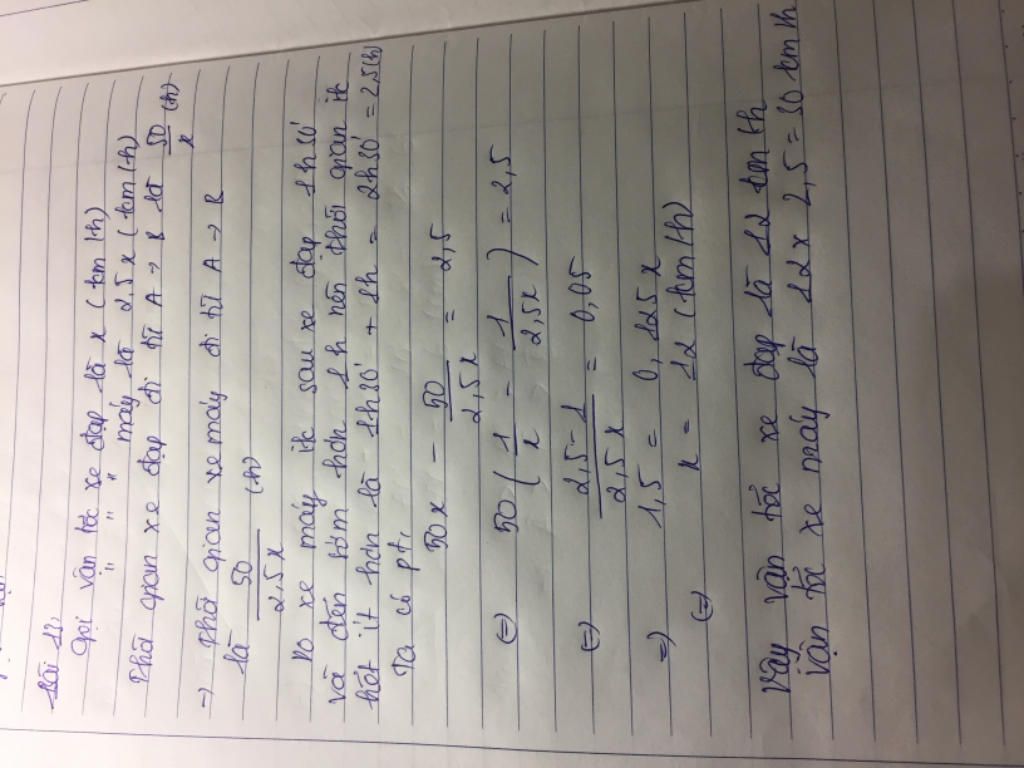 Bài 12
Gọi vận tốc xe đạp là x (km/h)
" " " máy là 2,5x (km/h)
Thời gian xe đạp đi từ A → B là 50/x (h)
→ Thời gian xe máy đi từ A → B
là 50/2,5x (h)
Do xe máy đi sau xe đạp 1h30'
và đến sớm hơn 1h nên thời gian đi
hết ít hơn là 1h30' + 1h = 2h30' = 2,5(h)
Ta có pt,
50x - 50/2,5x = 2,5
(=) 50 ( 1/x = 1/2,5x ) = 2,5
(=) 2,5-1/2,5x = 0,05
=) 1,5 = 0,125x
(=) x = 12 (km/h)
Vậy vận tốc xe đạp là 12 km/h
vận tốc xe máy là 12 x 2,5 = 30 km/h